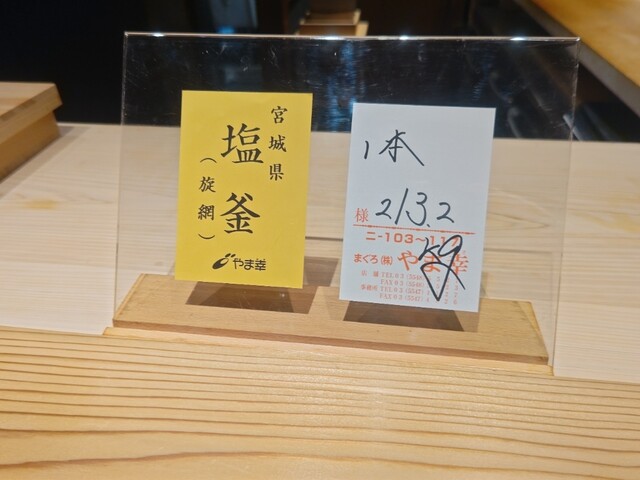 宮城県
塩釜
(旋網)
やま幸
1本
様 213.2
ニ-103~117
kg
まぐろ(株)やま幸